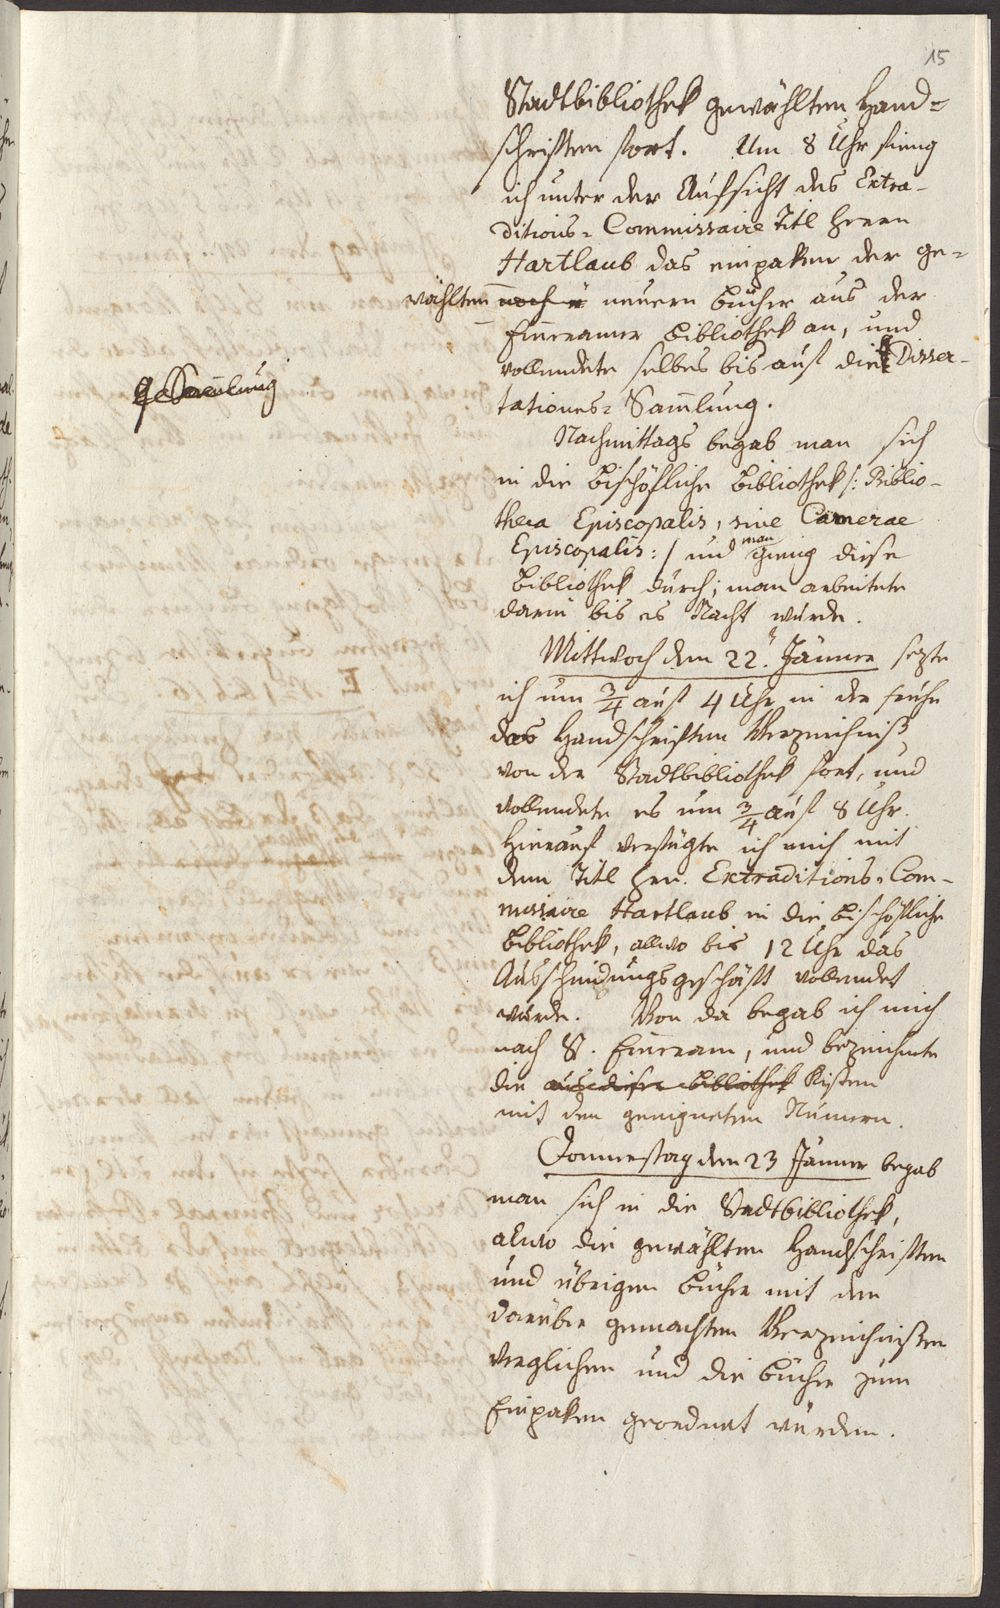 15
Stadtbibliothek gewählten Hand=
schriften fort. Um 8 Uhr fieng
ich unter der Aufsicht des Extra-
ditions=Commissaire Titl Herrn
Hartlaub das einpaken der ge=
wählten noch neuern Bücher aus der
Emeramer Bibliothek an, und
vollendete selbes bis auf die Disser-
Sam̄lung
tationes=Sam̄lung.
Nachmittags begab man sich
in die bischöfliche Bibliothek /: Biblio-
theca Episcopalis, sive Camerae
Episcopalis :/ und man gieng diese
Bibliothek durch; man arbeitete
darin bis es Nacht wurde.
Mittwoch den 22. Jänner sezte
ich um 3/4 auf 4 Uhr in der frühe
das Handschriften Verzeichniß
von der Stadtbibliothek fort, und
vollendete es um 3/4 auf 8 Uhr.
Hierauf verfügte ich mich mit
dem Titl Hrn. Extraditions=Com-
missaire Hartlaub in die bischöfliche
Bibliothek, allwo bis 12 Uhr das
Ausscheidungsgeschäft vollendet
wurde. Von da begab ich mich
nach St. Emeram, und bezeichnete
die aus dieser Bibliothek Kisten
mit den geeigneten Numern.
Donnerstag den 23 Jänner begab
man sich in die Stadtbibliothek,
allwo die gewählten Handschriften
und übrigen Bücher mit den
darüber gemachten Verzeichnißen
verglichen und die Bücher zum
Einpaken geordnet wurden.